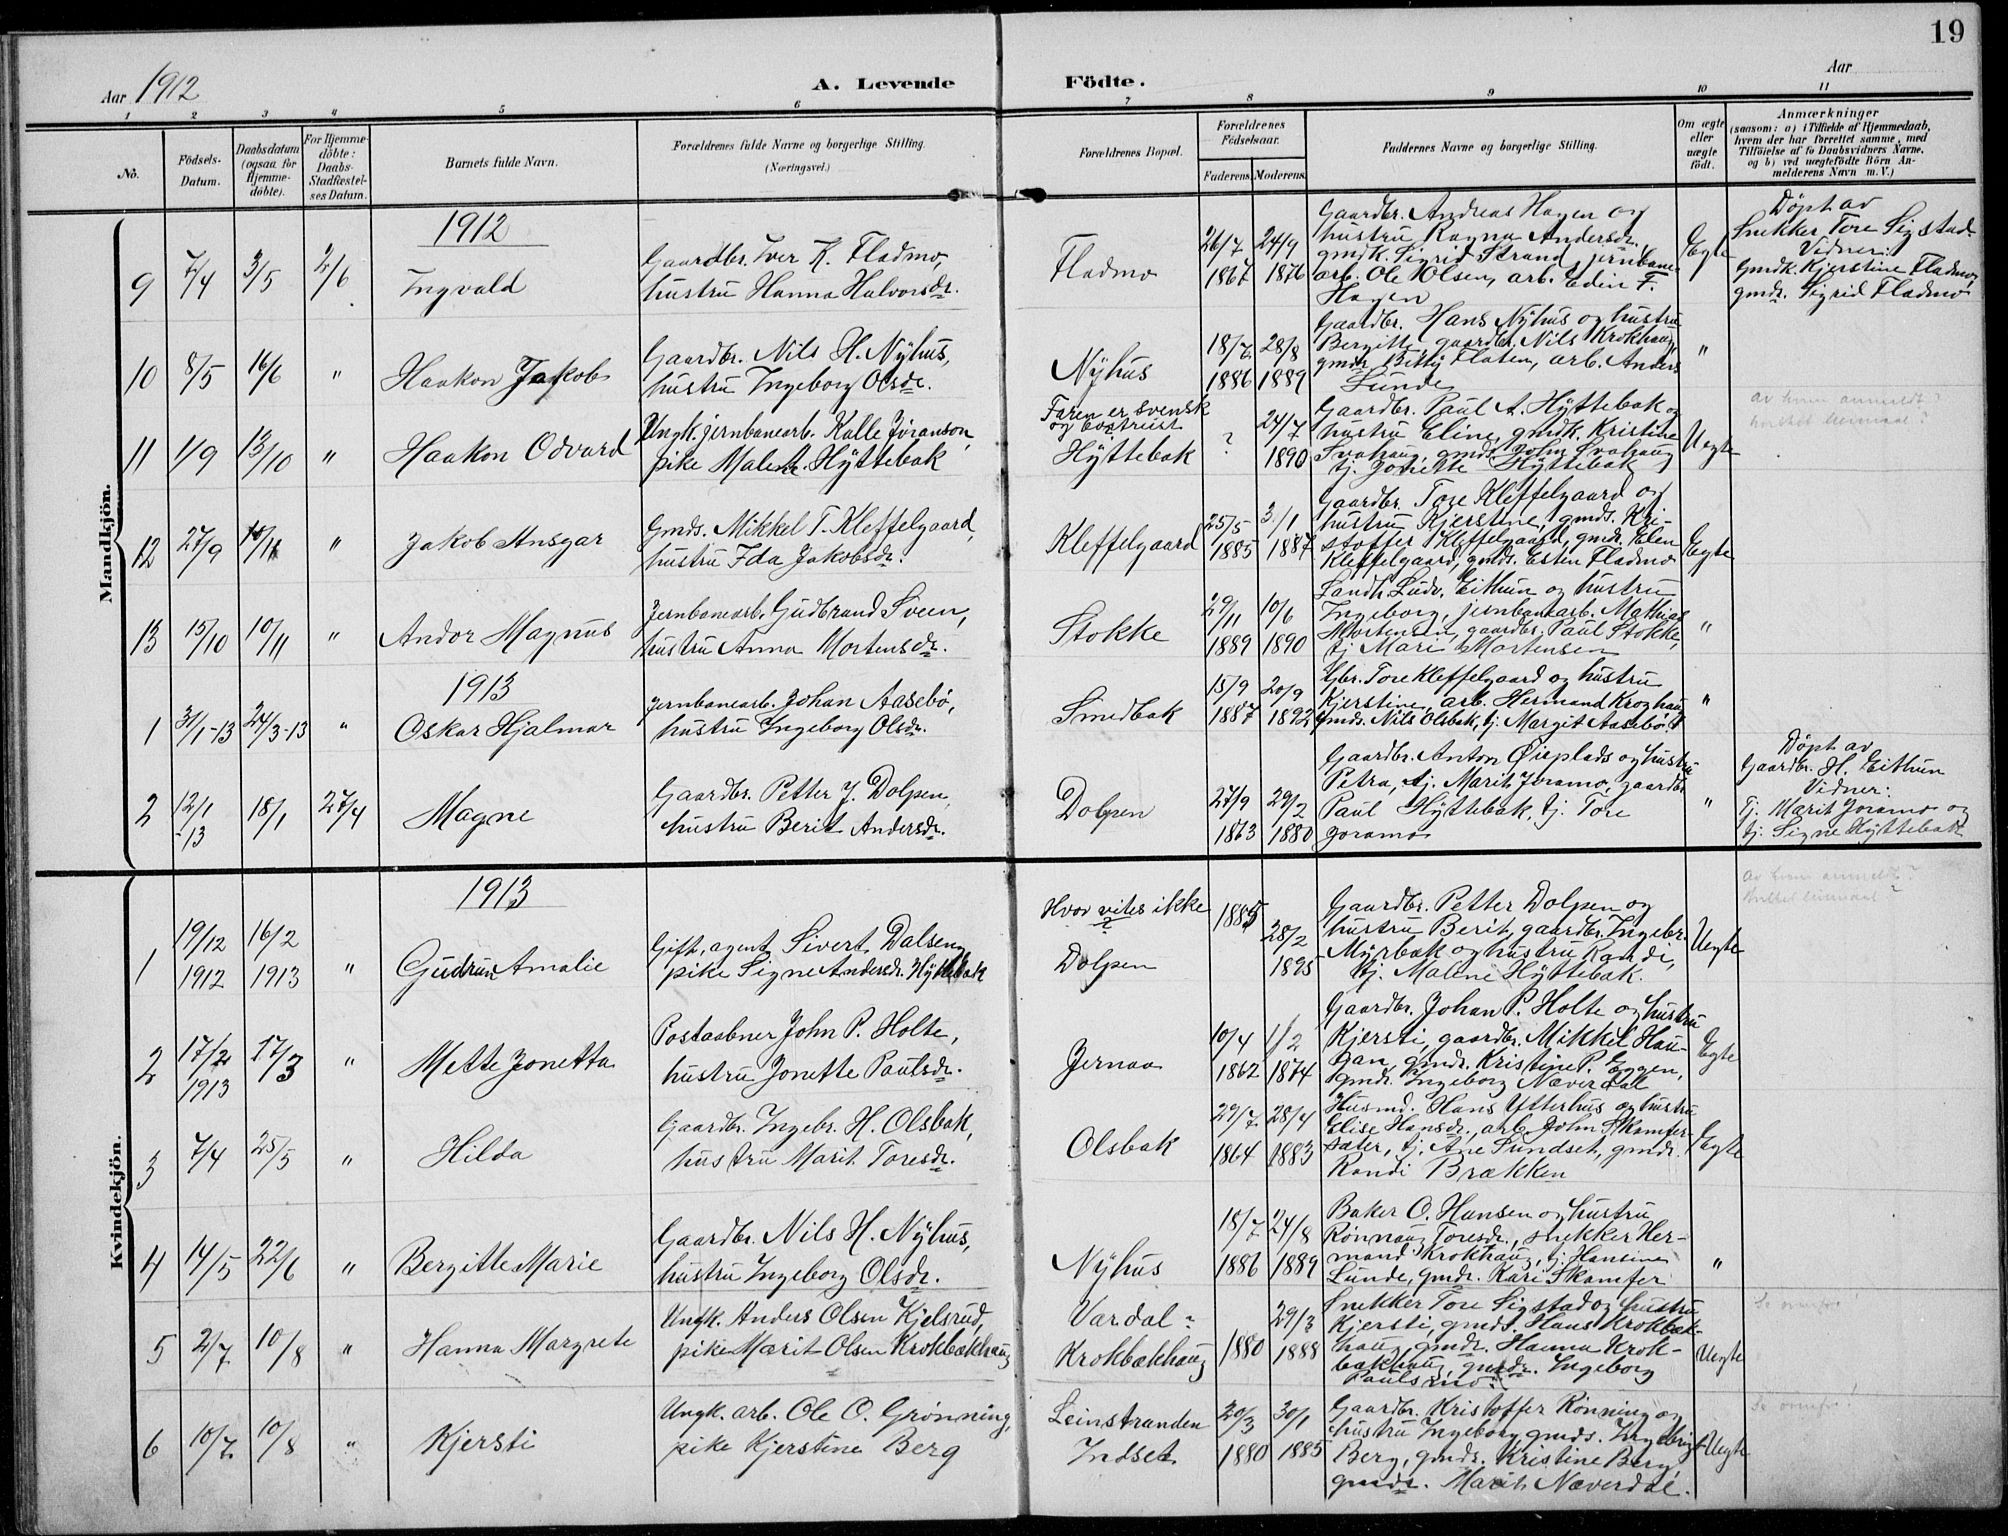 19
Aar 1912
A. Levende Födte.
Aar
1 2 3 4 5 6 7 8 9 10 11
No.
Födsels-
Datum.
Daabsdatum
(ogsaa for
Hjemme-
döbte).
For Hjemme-
döbte:
Daabs-
Stadfæstel-
ses Datum.
Barnets fulde Navn.
Forældrenes fulde Navne og borgerlige Stilling.
(Næringsvei.)
Forældrenes Bopæl.
Forældrenes
Födselsaar.
Faderens. Moderens.
Faddernes Navne og borgerlige Stilling.
Om ægte
eller
uægte
födt.
Anmærkninger
(saasom: a) i Tilfælde af Hjemmedaab,
hvem der har forrettet samme, med
Tilföielse af to Daabsvidners Navne,
og b) ved uægtefödte Börn An-
melderens Navn m. V.)
Mandkjön.
1912
9 7/4 3/5 2/6 Ingvald
Gaardbr. Iver K. Fladmo,
hustru Hanna Halvorsdr.
Fladmo
26/7 1867
24/9 1876
Gaardbr. Andreas Hagen og
hustru Ragna Andersdr.,
gmdk. Sigrid Strand, jernbane-
arb. Ole Olsen, arb. Edin F.
Hagen
Egte
Døpt av
Snekker Tore Sigstad
Vidner:
Gmdk. Kjerstine Fladmo,
gmdr. Sigrid Fladmo
10 8/5 16/6 " Haakon Jakob
Gaardbr. Nils H. Nÿhus,
hustru Ingeborg Olsdr.
Nÿhus
18/7 1886
28/8 1889
Gaardbr. Hans Nÿhus og hustru
Bergitte, gaardbr. Nils Krokhaug,
gmdr. Bitty Floten, arb. Anders
Lunde
"
11 1/9 13/10 " Haakon Odvard
Ungk. jernbanearb. Kalle Jøranson,
pike Malen A. Hÿttebak
Faren er svensk
og
Hÿttebak
?
24/7 1890
Gaardbr. Paul A. Hÿttebak og
hustru Eline, gmdk. Kristine
Svahaug, gmds. John Svahaug
tj. Jonette Hÿttebak
Uegte
av hvem anmeldt?
12 27/9 10/11 " Jakob Ansgar
Gmds. Mikkel T. Kleffelgaard,
hustru Ida Jakobsdr.
Kleffelgaard
25/5 1885
3/1 1887
Gaardbr. Tore Kleffelgaard og
hustru Kjerstine, gmds. Kri-
stoffer Kleffelgaard, gmdr. Elen
Kleffelgaard, gmds. Esten Fladmo
Egte
13 15/10 10/11 " Andor Magnus
Jernbanearb. Gudbrand Sveen,
hustru Anna Mortensdr.
Stokke
29/11 1889
10/6 1890
Landh. Ludv. Eithun og hustru
Ingeborg, jernbanearb. Mathias
Mortensen, gaardbr. Paul Stokke,
tj. Mari Mortensen
"
1913
1 31/1-13 24/3-13 " Oskar Hjalmar
Jernbanearb. Johan Aasebö,
hustru Ingeborg Olsdr.
Smedbak
15/9 1887
20/9 1892
Gbr. Tore Kleffelgaard og hustru
Kjerstine, arb. Hermand Kroghaug
Gmds. Nils Olsbak, tj. Margit Aasebö
"
2 12/1-13 18/1 27/4 Magne
Gaardbr. Petter J. Dolpen,
hustru Berit Andersdr.
Dolpen
27/9 1863
29/2 1880
Gaardbr. Anton Øieplads og hustru
Petra, tj. Marit Joramo, gaardbr.
Paul Hÿttebak, tj. Tore
Joramo
"
Døpt av
Gaardbr. H. Eithun
Vidner:
Tj. Marit Joramo og
tj. Signe Hÿttebak
Kvindekjön.
1913
1 19/12 1912 16/2 1913 " Gudrun Amalie
Gift, agent Sivert Dalseng
pike Signe Andersdr. Hÿttebak
Hvor vites ikke
?
Dolpen
1885
28/2 1895
Gaardbr. Petter Dolpen og
hustru Berit, gaardbr. Ingebr.
Mÿrbak og hustru Randi,
tj. Malene Hÿttebak.
Uegte
av hvem anmeldt?
2 17/2 1913 17/3 " Mette Jonetta
Postaabner John P. Holte,
hustru Jonette Paulsdr.
Jernaa
10/4 1862
1/2 1874
Gaardbr. Johan P. Holte og hustru
Kjersti, gaardbr. Mikkel Hau-
gan, gmdr. Kristine P. Eggen,
gmdr. Ingeborg Næverdal
Egte
3 7/4 25/5 " Hilda
Gaardbr. Ingebr. H. Olsbak,
hustru Marit Toresdr.
Olsbak
29/7 1864
28/4 1883
Husmd. Hans Ytterhus og hustru
Elise Hansdr., arb. John Skamfer-
sæter, tj. Ane Sundset, gmdr.
Randi Brækken
Egte
4 14/5 22/6 " Bergitte Marie
Gaardbr. Nils H. Nÿhus,
hustru Ingeborg Olsdr.
Nÿhus
18/7 1886
24/8 1889
Baker O. Hansen og hustru
Rønnaug Toresdr., snekker Her-
mand Krokhaug, tj. Hansine
Lunde, gmdr. Kari Skamfer
"
5 2/7 10/8 " Hanna Margrete
Ungk. Anders Olsen Kjelsrud,
pike Marit Olsen Krokbækhaug
Vardal-
Krokbækhaug
1880
29/3 1888
Snekker Tore Sigstad og hustru
Kjersti, gmds. Hans Krokbæk-
haug, gmdr. Hanna Krok-
bækhaug, gmdr. Ingeborg
Uegte
6 10/7 10/8 " Kjersti
Ungk. arb. Ole O. Grønning,
pike Kjerstine Berg
Leinstranden
Indset
20/3 1880
30/1 1885
Gaardbr. Kristoffer Rönning og
hustru Ingeborg, gmds. Ingebrigt
Berg, gmdr. Kristine Berg,
gmdr. Marit Næverdal.
Uegte